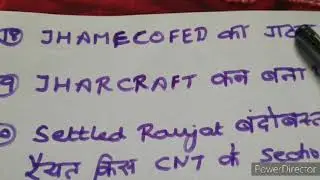 18 JHAMECOFED का गठन
9 JHARCRAFT कब बना
Settled Raiyat बंदोबस्त
रैयत किस CNT के Sectio
PowerDirector